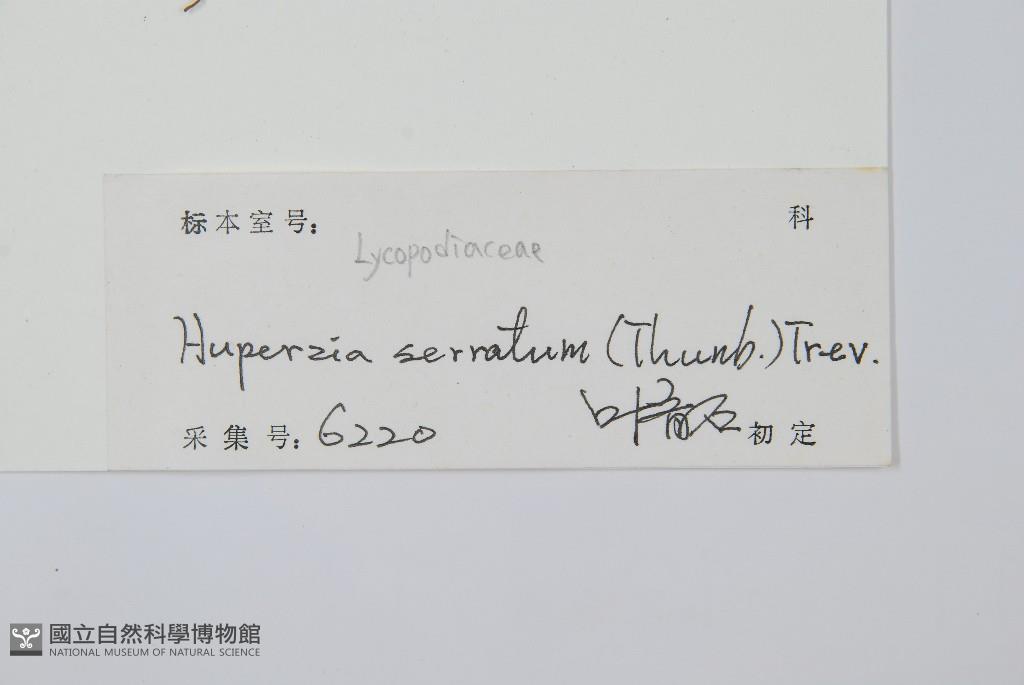 标本室号: 科
Lycopodiaceae
Huperzia serratum (Thunb.) Trev.
采集号: 6220 叶 初定
國立自然科學博物館
NATIONAL MUSEUM OF NATURAL SCIENCE